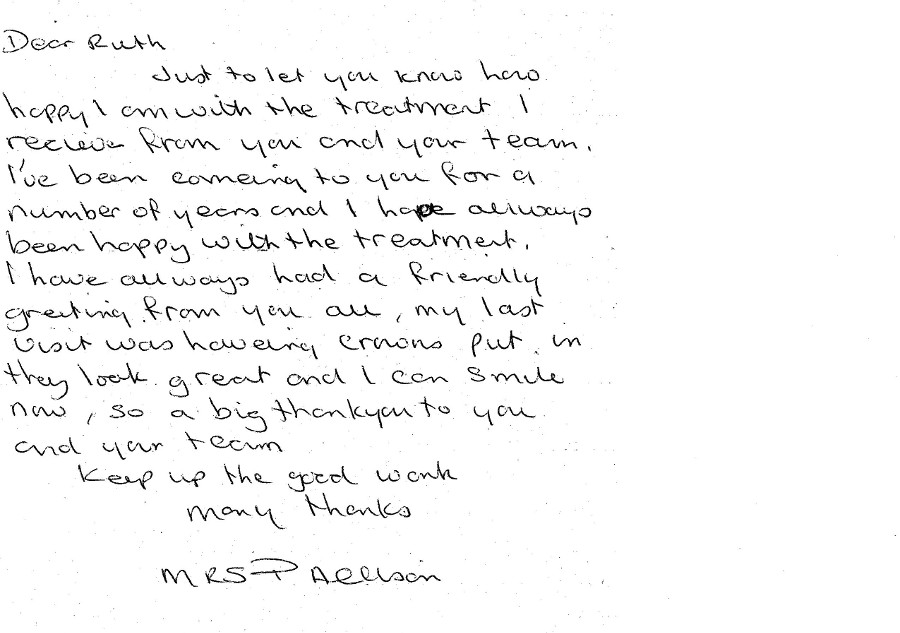 Dear Ruth
Just to let you know how
happy I am with the treatment I
recieve from you and your team.
I've been comeing to you for a
number of years and I hope allways
been happy with the treatment.
I have allways had a friendly
greeting from you all, my last
visit was haveing crowns put in
they look great and I can smile
now, so a big thankyou to you
and your team
Keep up the good work
Many thanks
MRS P Allison